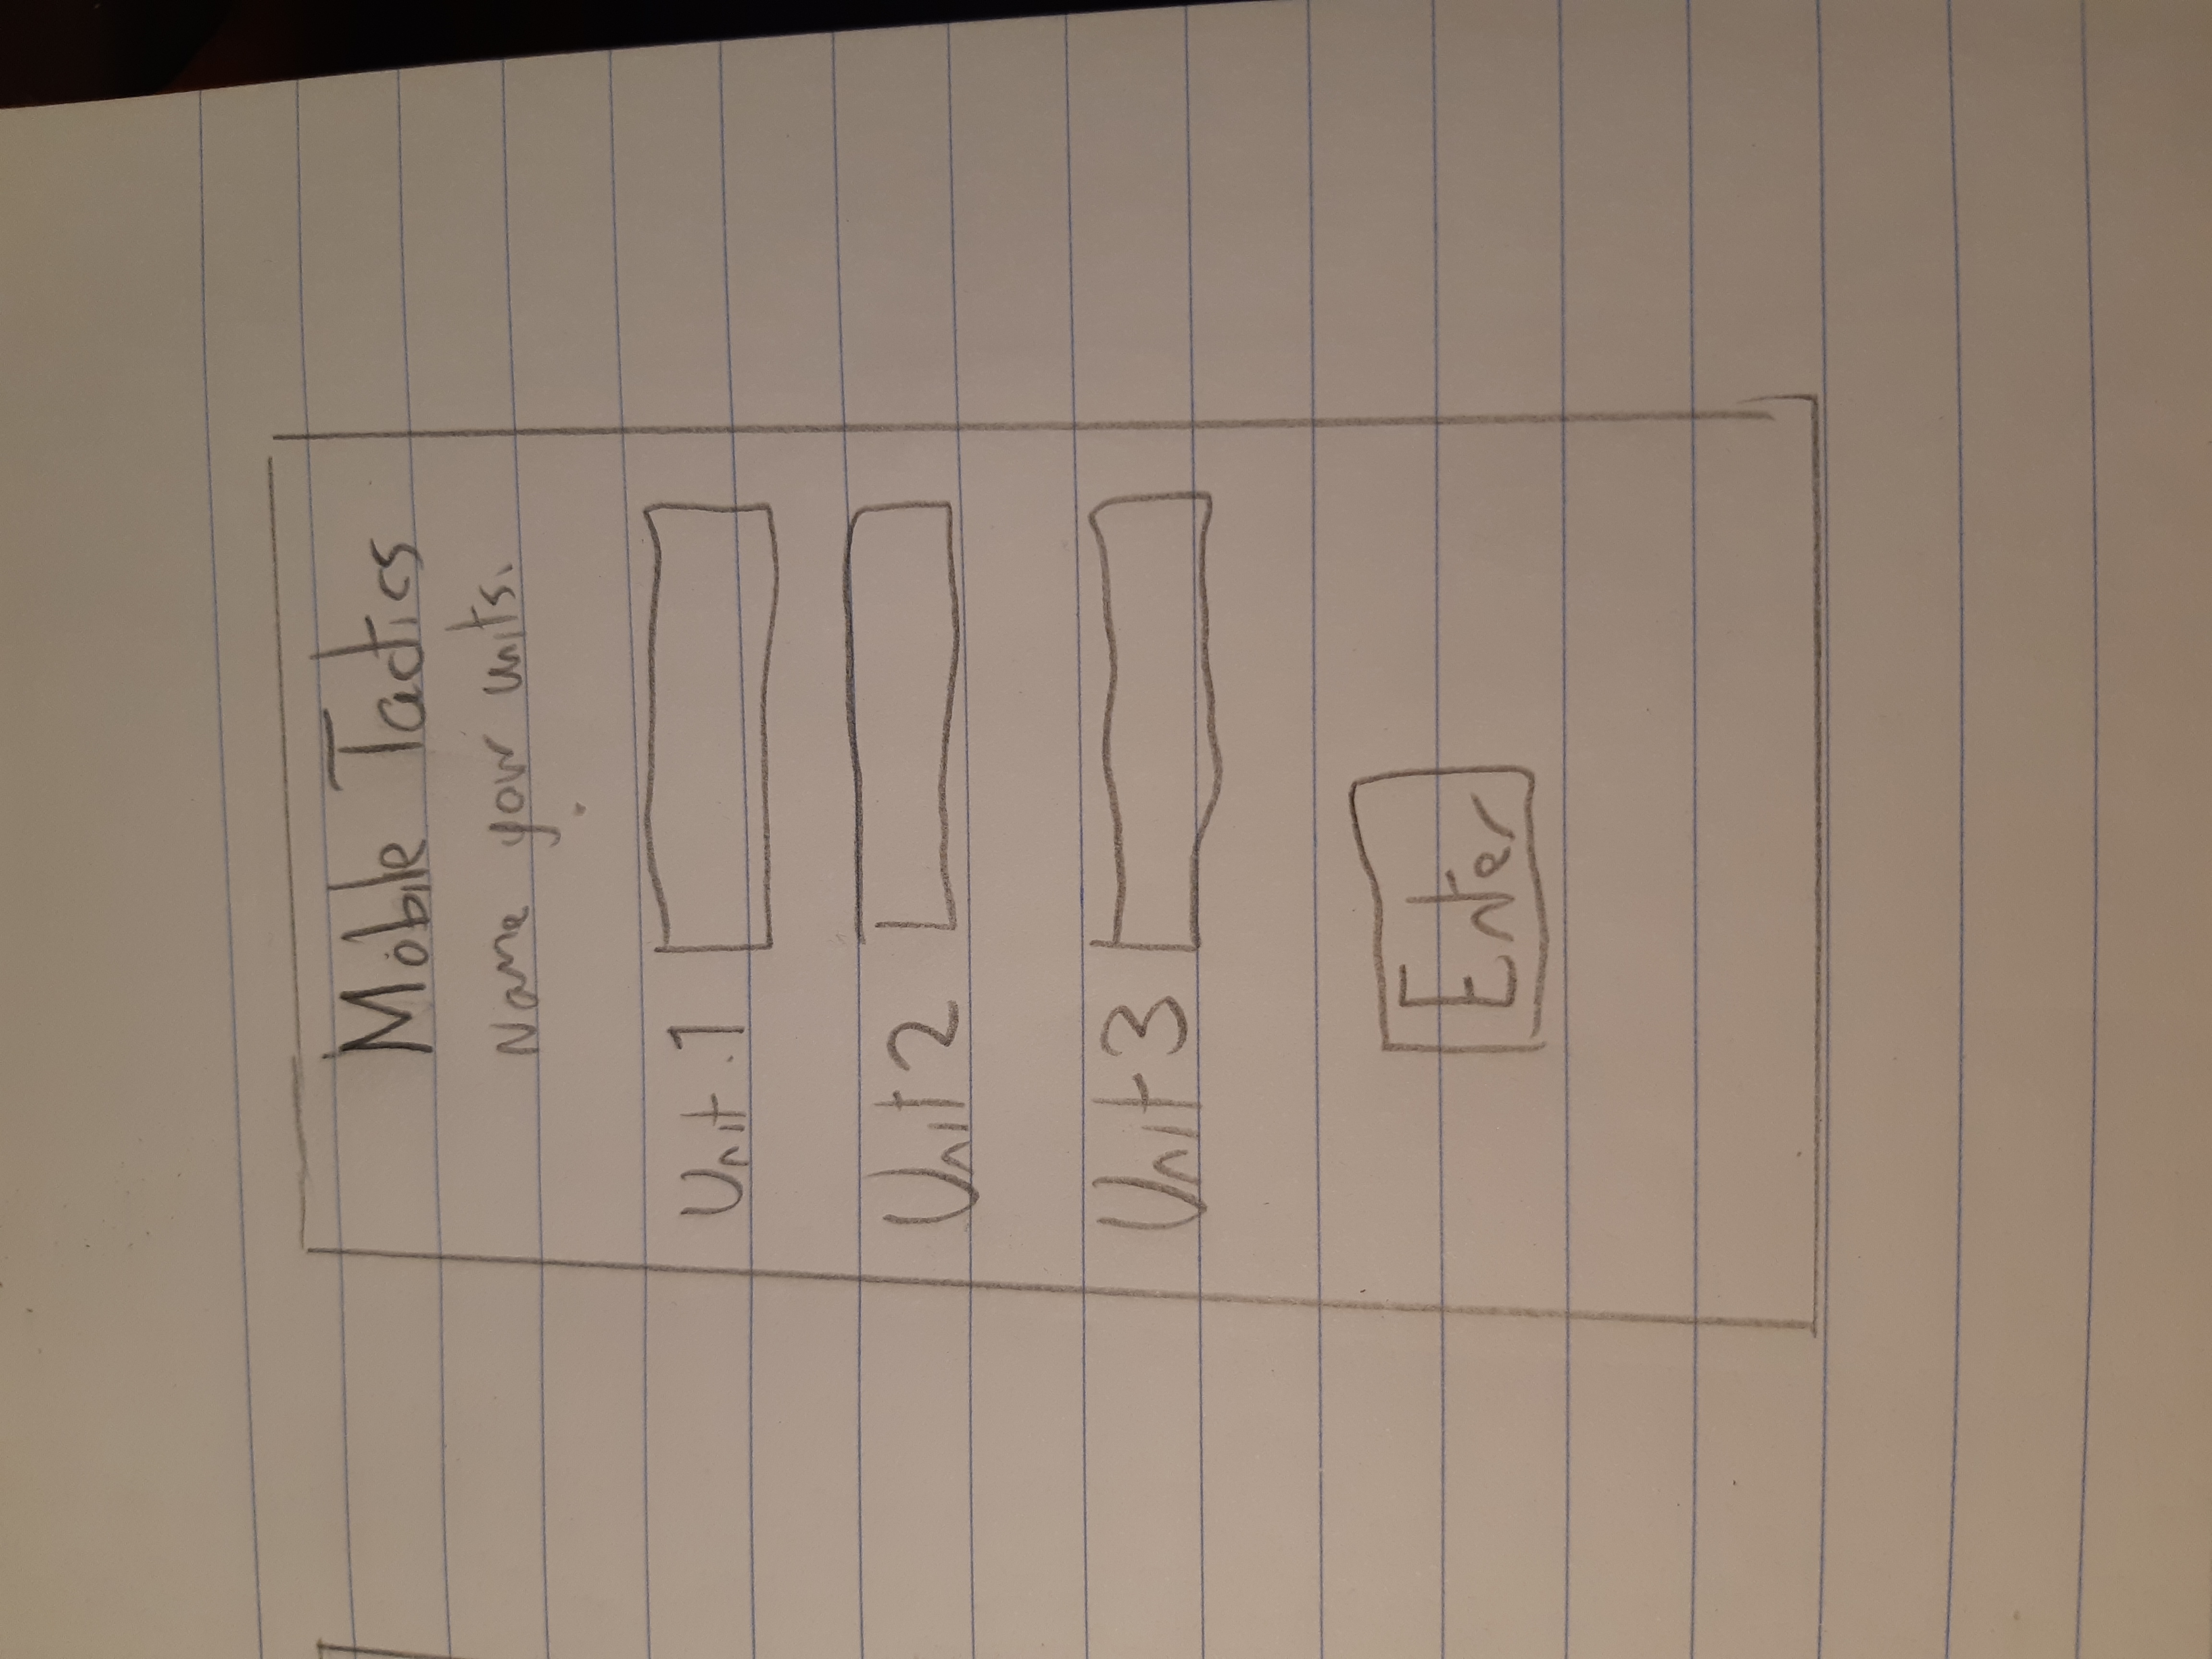 Mobile Tactics
Name your units.
Unit 1
Unit 2
Unit 3
Enter